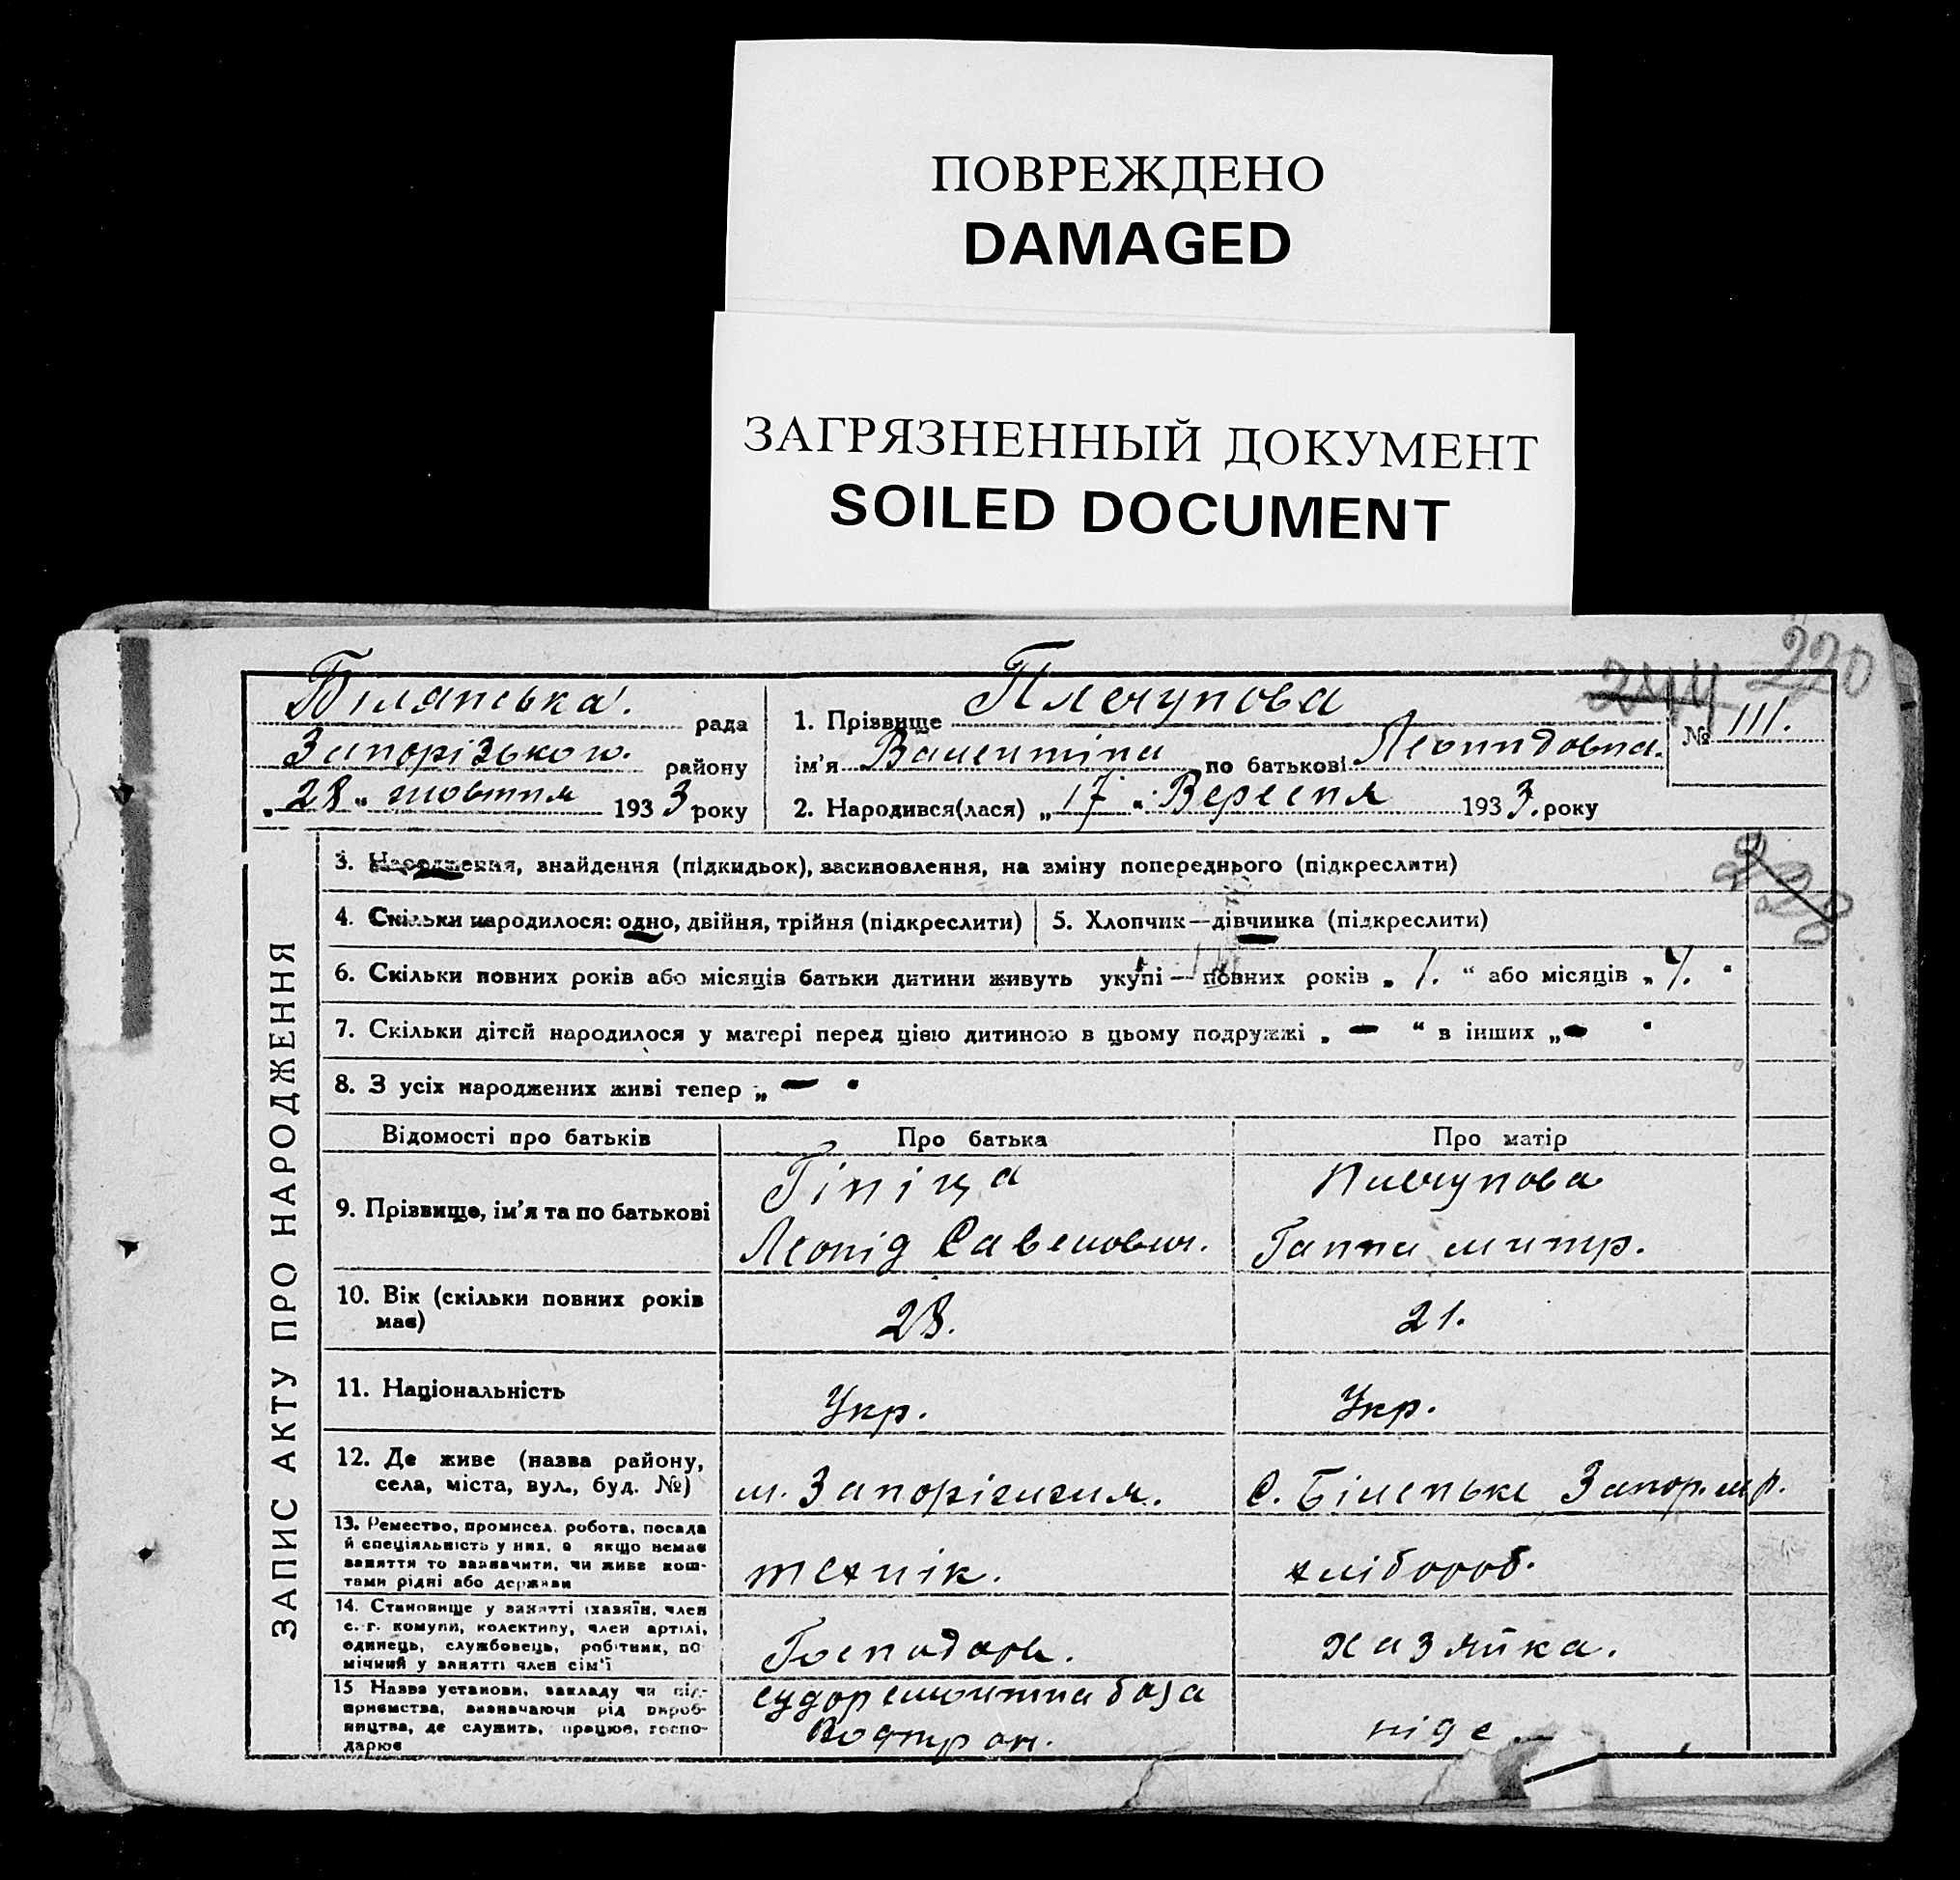 ПОВРЕЖДЕНО
DAMAGED
ЗАГРЯЗНЕННЫЙ ДОКУМЕНТ
SOILED DOCUMENT
220
244
Білянська. рада
Запорізького. району
„28“ жовтня 1933 року
1. Прізвище Плечунова
№ 111.
ім'я Валентина по батькові Леонидовна.
2. Народився(лася) „17“ Вересня 1933. року
ЗАПИС АКТУ ПРО НАРОДЖЕННЯ
3. Народження, знайдення (підкидьок), засиновлення, на зміну попереднього (підкреслити)
4. Скільки народилося: одно, двійня, трійня (підкреслити)
5. Хлопчик—дівчинка (підкреслити)
6. Скільки повних років або місяців батьки дитини живуть укупі — повних років „ 1. “ або місяців „
7. Скільки дітей народилося у матері перед цією дитиною в цьому подружжі „ — “ в інших „ —
8. З усіх народжених живі тепер „ —
Відомості про батьків
Про батька
Про матір
9. Прізвище, ім'я та по батькові
Гініца
Леонід Савелович.
Плечунова
Ганна митр.
10. Вік (скільки повних років має)
28.
21.
11. Національність
Укр.
Укр.
12. Де живе (назва району,
села, міста, вул., буд. №)
м. Запоріжжя.
с. Біленьке Запор. м.р.
13. Ремество, промисел, робота, посада
й спеціяльність у них, а якщо немає
заняття то зазначити, чи живе кош-
тами рідні або держави
технік.
хлібороб.
14. Становище у занятті (хазяїн, член
с.-г. комуни, колективу, член артілі,
одинець, службовець, робітник, по-
мічний у занятті член сім'ї
Господарь.
хазяйка.
15 Назва установи, закладу чи під-
приємства, визначаючи рід вироб-
ництва, де служить, працює, госпо-
дарює
судоремонтна база
ніде